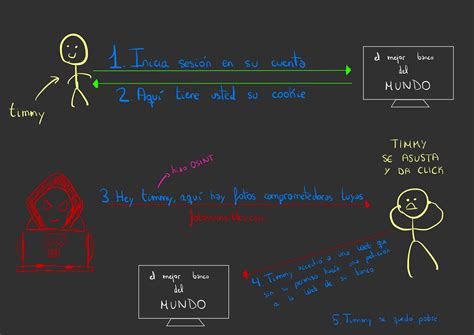 1. Inicia sesión en su cuenta
el mejor banco
del
MUNDO
2. Aquí tiene usted su cookie
timmy
TIMMY
SE ASUSTA
Y DA CLICK
hizo OSINT
3. Hey timmy, aquí hay fotos comprometedoras tuyas
el mejor banco
del
MUNDO
4. Timmy accedió a una web que
sin su permiso hacía una petición
a la web de su banco
5. Timmy se queda pobre